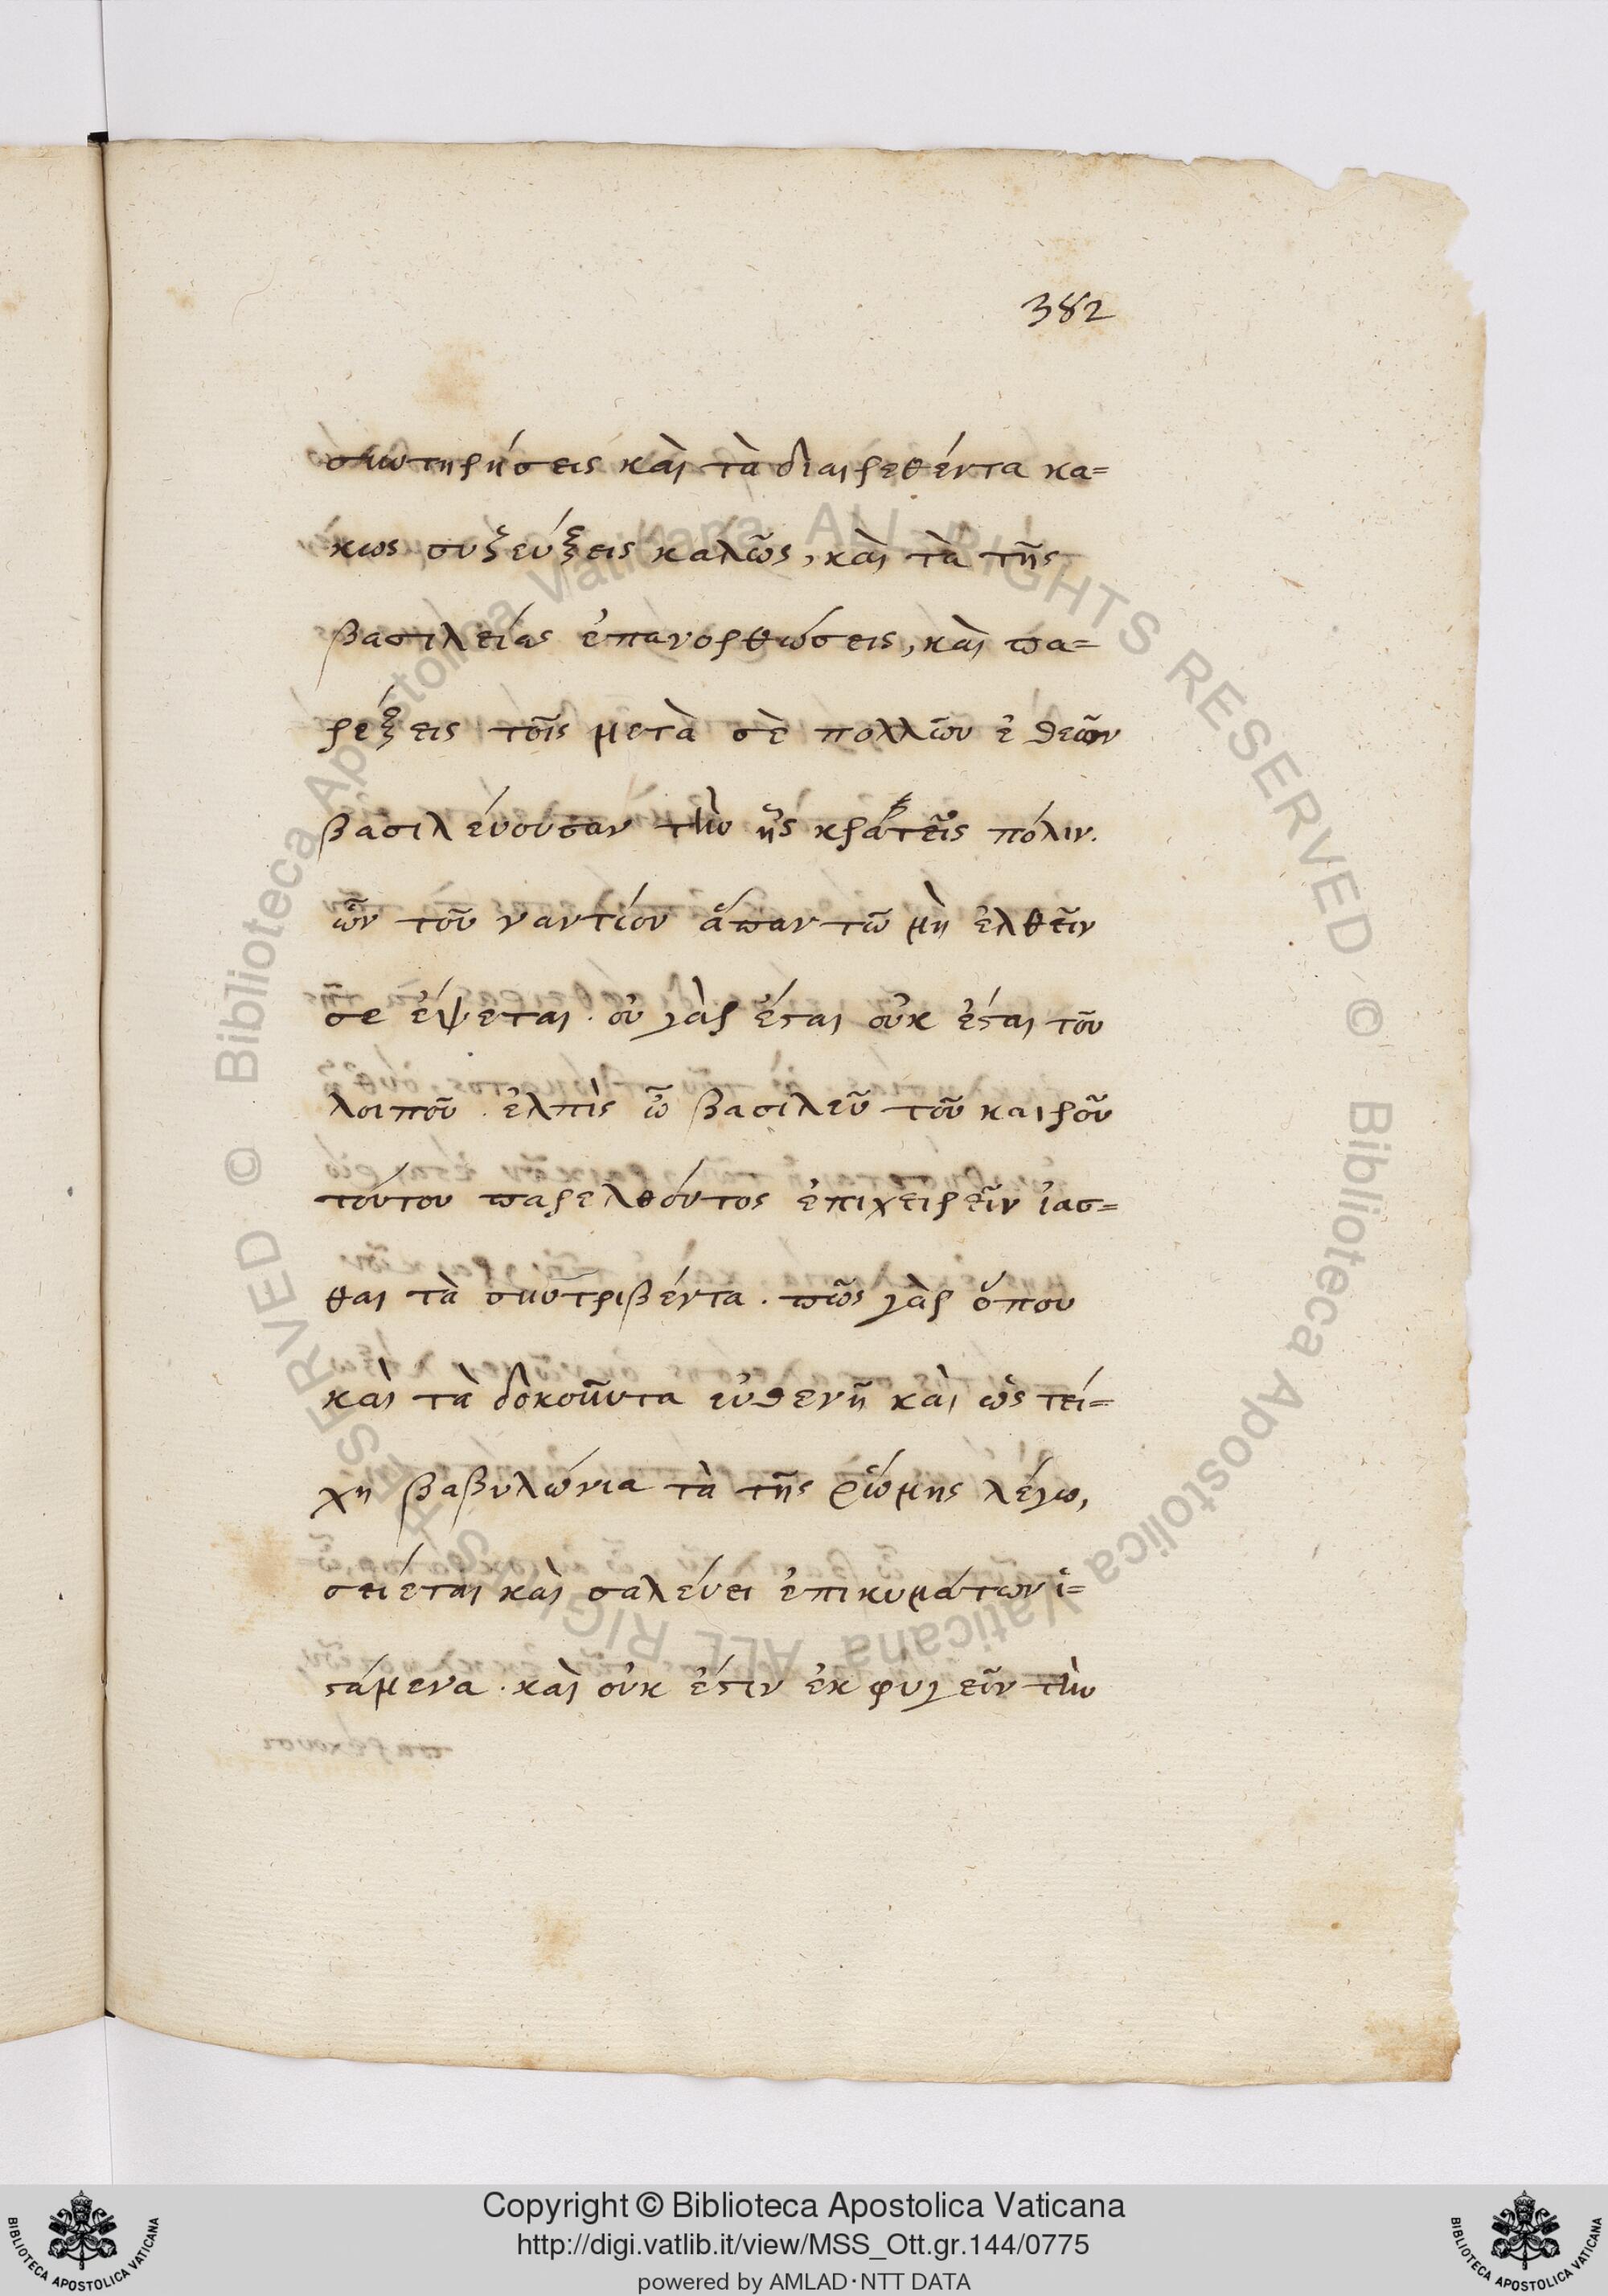 382
συντηρήσεις καὶ τὰ διαιρεθέντα κα=
κως συζεύξεις καλῶς, καὶ τὰ τῆς
βασιλείας ἐπανορθώσεις, καὶ πα=
ρέξεις τοῖς μετὰ σὲ πολλῶν ἐθνῶν
βασιλεύουσαν τὴν ἧς κρατεῖς πόλιν.
ὧν τοῦ ναντίον ἅπαν τῶ μὴ ἐλθεῖν
σε ἕψεται. οὐ γὰρ ἔσται οὐκ ἔσται τοῦ
λοιποῦ. ἐλπὶς ὦ βασιλεῦ τοῦ καιροῦ
τούτου παρελθόντος ἐπιχειρεῖν ἰασ=
θαι τὰ συντριβέντα. πῶς γὰρ ὅπου
καὶ τὰ δοκοῦντα εὐθενῆ καὶ ὡς τεί=
χη βαβυλώνια τὰ τῆς ῥώμης λέγω,
σείεται καὶ σαλεύει ἐπικυμάτων ἱ=
στάμενα. καὶ οὐκ ἔστιν ἐκφυγεῖν τὴν
Copyright © Biblioteca Apostolica Vaticana
http://digi.vatlib.it/view/MSS_Ott.gr.144/0775
powered by AMLAD·NTT DATA
BIBLIOTECA APOSTOLICA VATICANA
BIBLIOTECA APOSTOLICA VATICANA
© Biblioteca Apostolica Vaticana ALL RIGHTS RESERVED
© Biblioteca Apostolica Vaticana ALL RIGHTS RESERVED